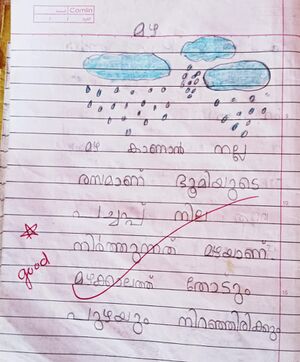 Camlin
മഴ
മഴ കാണാൻ നല്ല
രസമാണ് ഭൂമിയുടെ
പച്ചപ്പ് നില
നിർത്തുന്നത് മഴയാണ്.
മഴക്കാലത്ത് തോടും
പുഴയും നിറഞ്ഞിരിക്കും
good